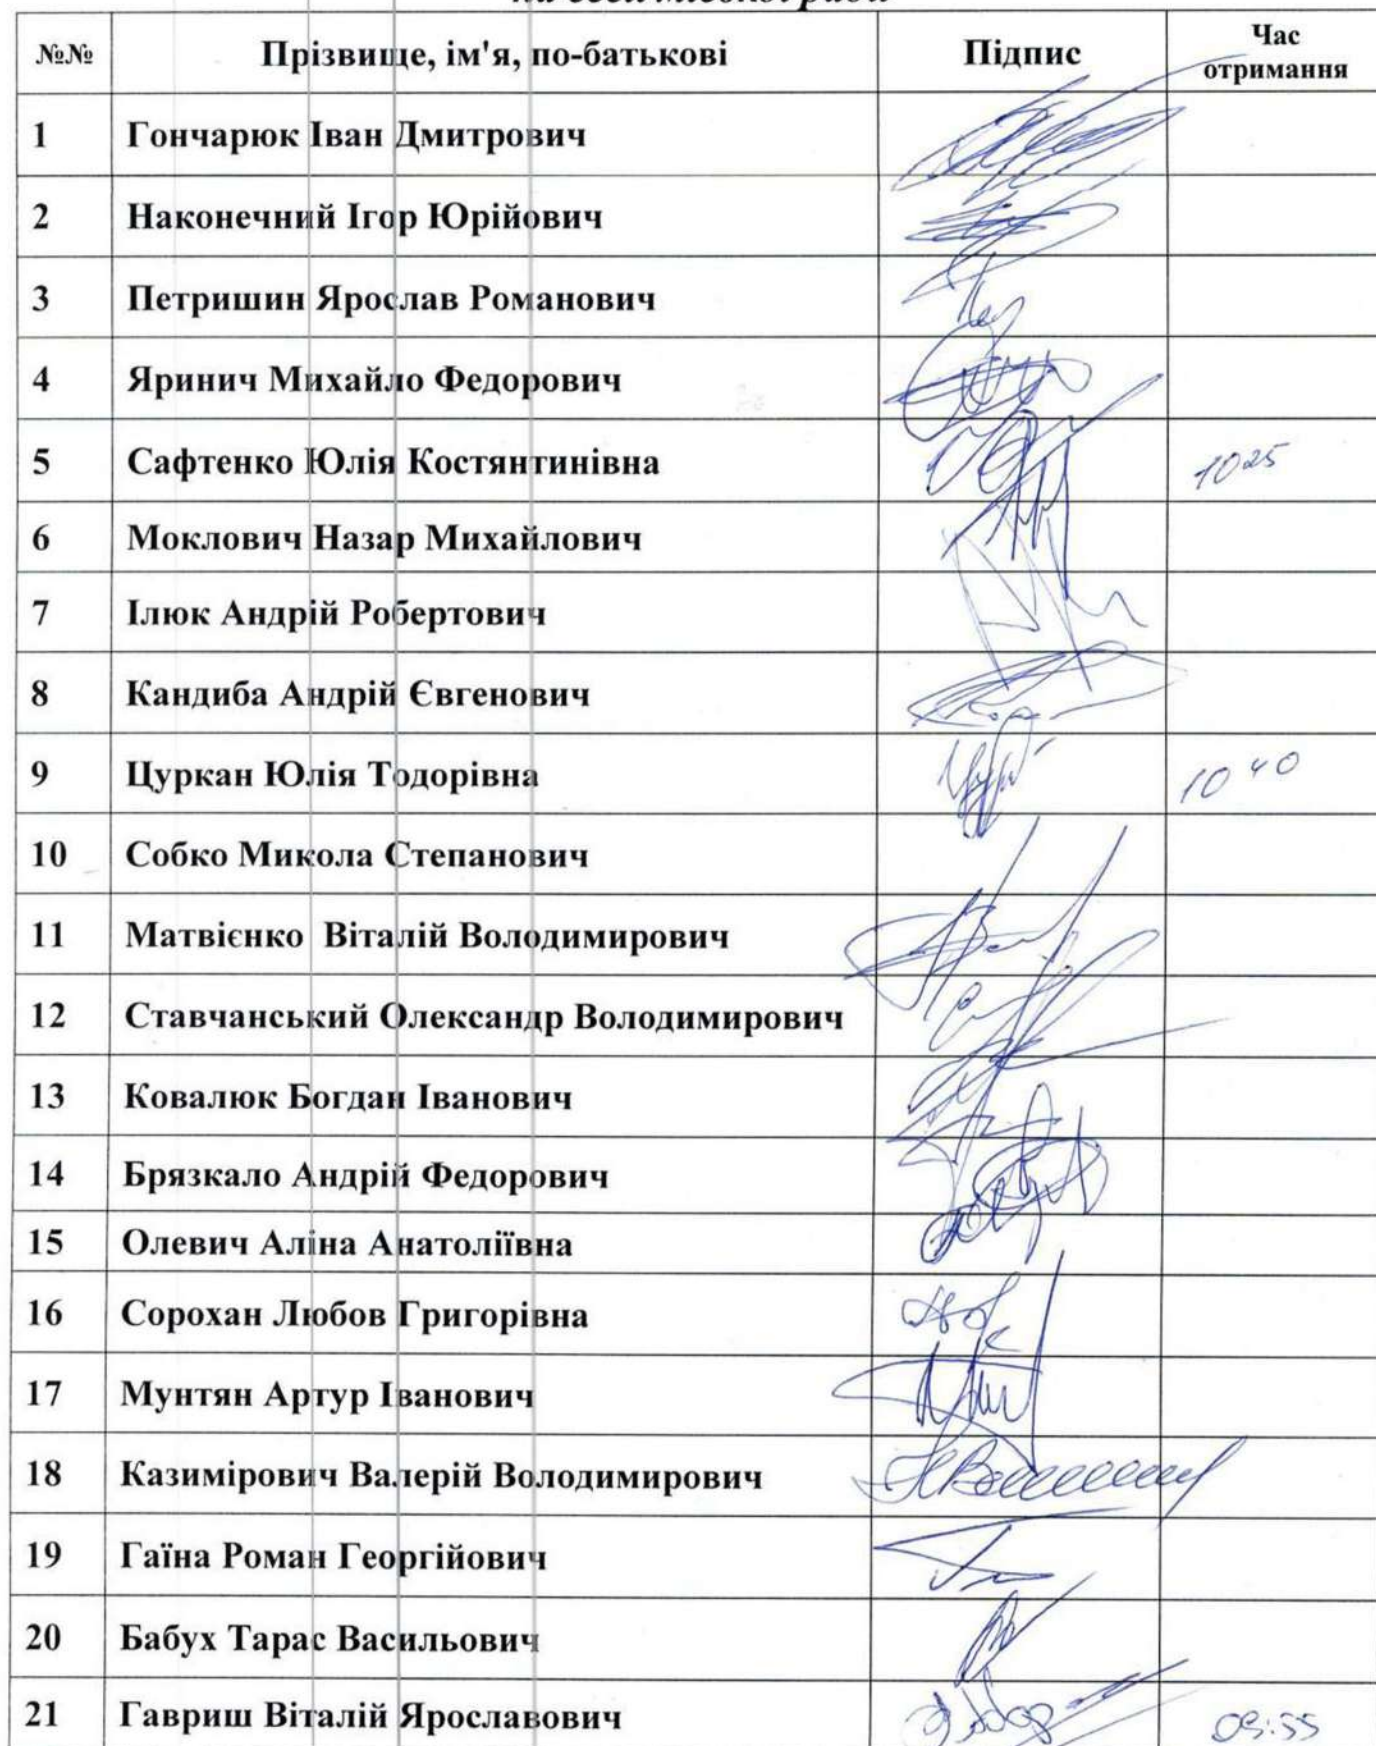 №№ Прізвище, ім'я, по-батькові Підпис Час отримання
1 Гончарюк Іван Дмитрович
2 Наконечний Ігор Юрійович
3 Петришин Ярослав Романович
4 Яринич Михайло Федорович
5 Сафтенко Юлія Костянтинівна 10 25
6 Моклович Назар Михайлович
7 Ілюк Андрій Робертович
8 Кандиба Андрій Євгенович
9 Цуркан Юлія Тодорівна 10 40
10 Собко Микола Степанович
11 Матвієнко Віталій Володимирович
12 Ставчанський Олександр Володимирович
13 Ковалюк Богдан Іванович
14 Брязкало Андрій Федорович
15 Олевич Аліна Анатоліївна
16 Сорохан Любов Григорівна
17 Мунтян Артур Іванович
18 Казимірович Валерій Володимирович
19 Гаїна Роман Георгійович
20 Бабух Тарас Васильович
21 Гавриш Віталій Ярославович 09:55